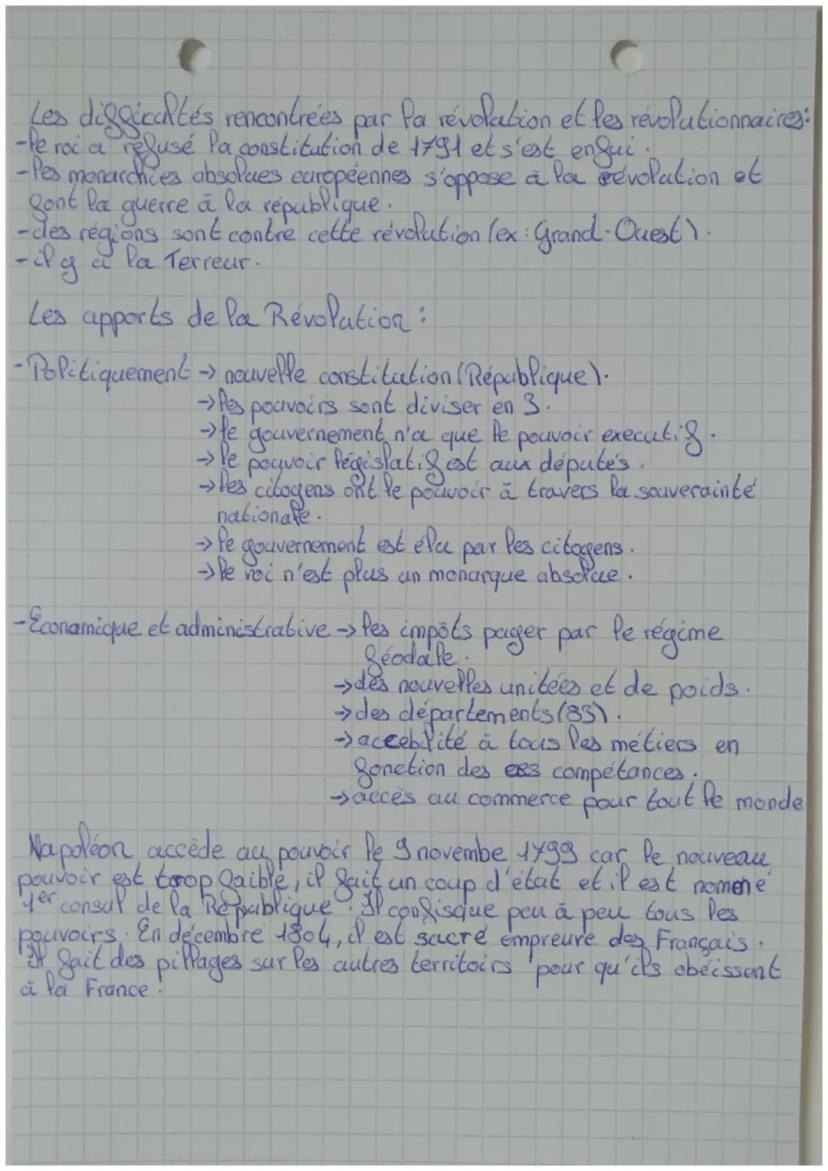 Les difficultés rencontrées par la révolution et les révolutionnaires:
-le roi a refusé la constitution de 1791 et s'est enfui.
-les monarchies absolues européennes s'oppose à la révolution et
font la guerre à la république.
-des régions sont contre cette révolution (ex: Grand-Ouest).
-il y a la Terreur.
Les apports de la Révolution:
-Politiquement → nouvelle constitution (République).
→les pouvoirs sont diviser en 3.
→le gouvernement n'a que le pouvoir executif.
→le pouvoir législatif est aux députés.
→les citoyens ont le pouvoir à travers la souverainté
nationale.
→le gouvernement est élu par les citoyens.
→le roi n'est plus un monarque absolue.
-Économique et administrative → les impôts payer par le régime
féodale.
→des nouvelles unitées et de poids.
→des départements (83).
→accebilité à tous les métiers en
fonction des compétances.
→accès au commerce pour tout le monde
Napoléon accède au pouvoir le 9 novembe 1799 car le nouveau
pouvoir est troop faible, il fait un coup d'état et il est nomené
1er consul de la République. Il confisque peu à peu tous les
pouvoirs. En décembre 1804, il est sacré empreure des Français.
Il fait des pillages sur les autres territoirs pour qu'ils obéissent
à la France.